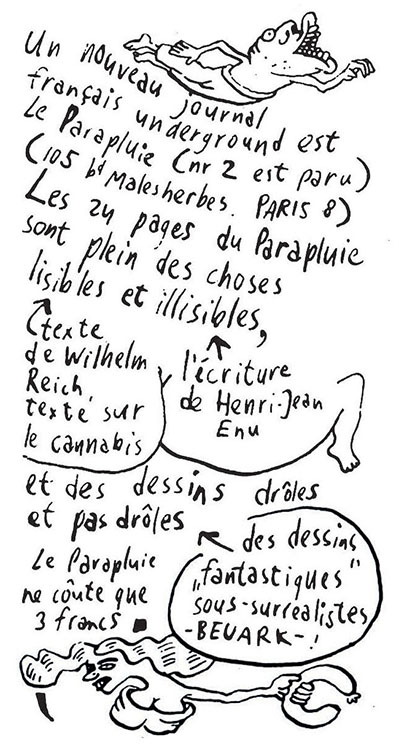 Un nouveau journal
français underground est
Le Parapluie (nr 2 est paru)
(105 bd Malesherbes. PARIS 8)
Les 24 pages du Parapluie
sont plein des choses
lisibles et illisibles,
(texte
de Wilhelm
Reich,
texte sur
le cannabis
l'écriture
de Henri-Jean
Enu
et des dessins drôles
et pas drôles
des dessins
„fantastiques"
sous-surrealistes
-BEUARK-!
Le Parapluie
ne coûte que
3 francs